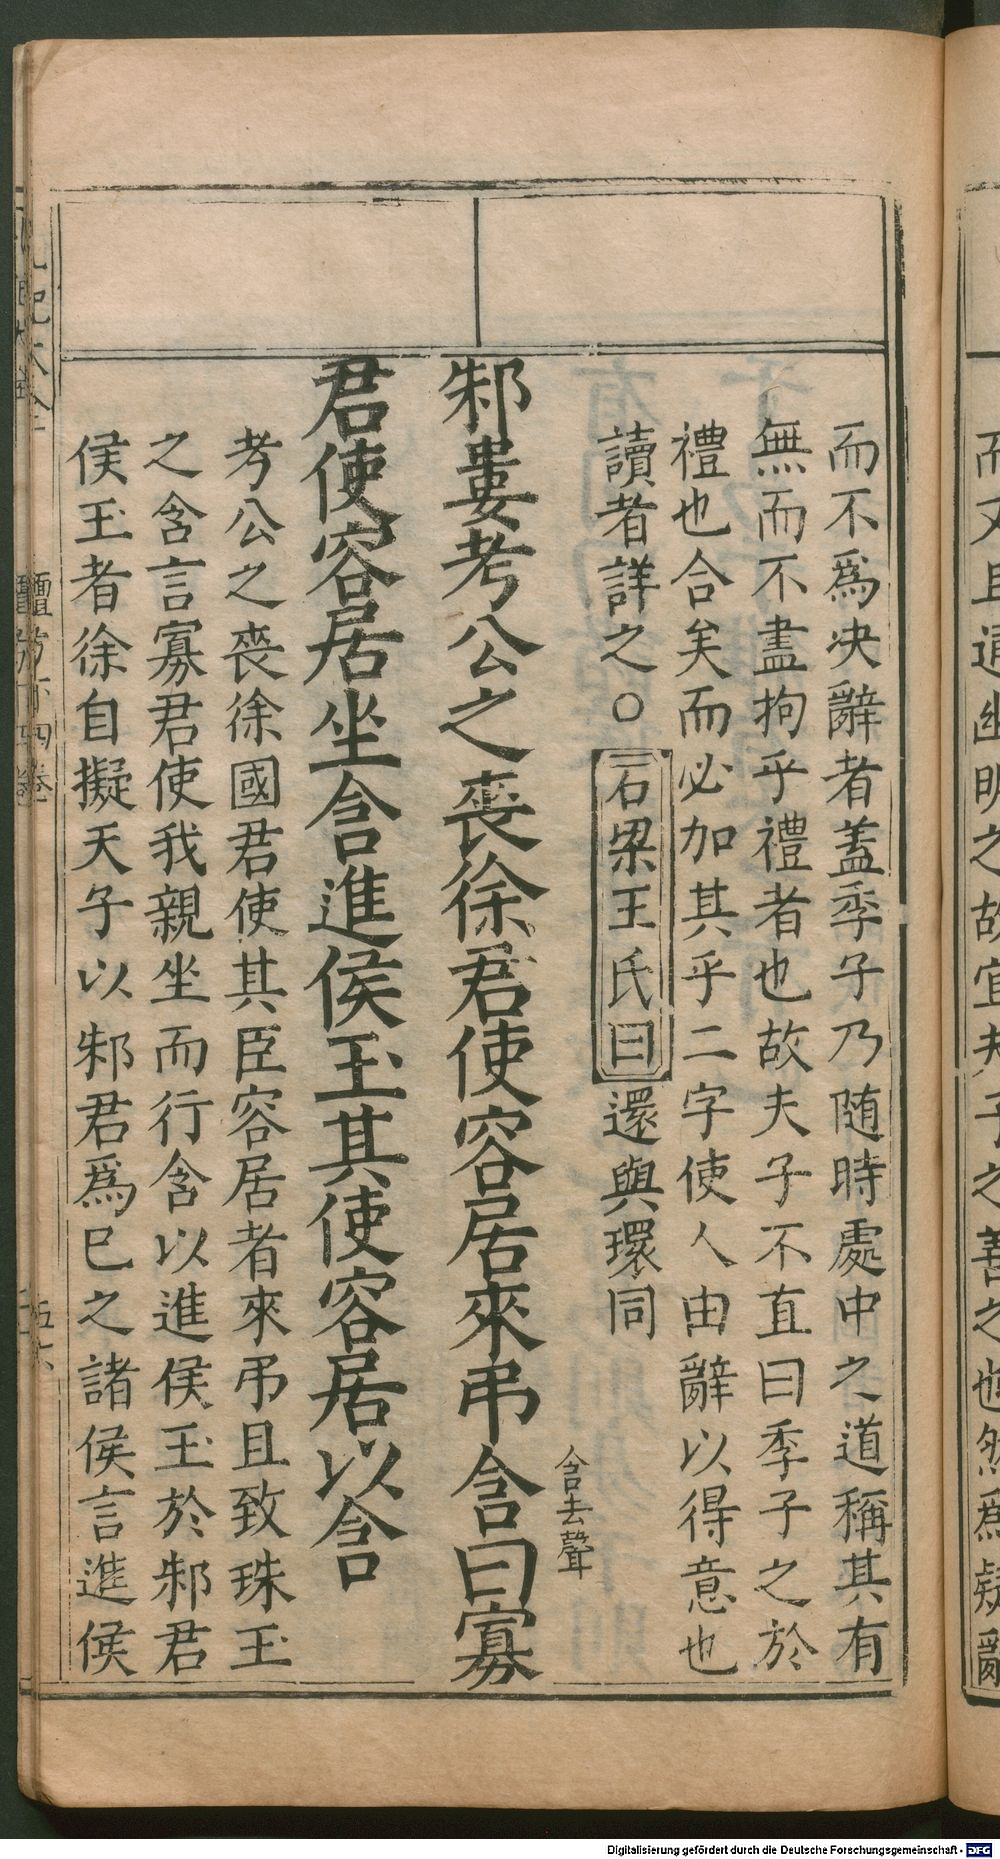 而不爲决辭者蓋季子乃随時處中之道稱其有
無而不盡拘乎禮者也故夫子不直曰季子之於
禮也合矣而必加其乎二字使人由辭以得意也
讀者詳之○石梁王氏曰還與環同
含去聲
邾婁考公之喪徐君使容居來弔含曰寡
君使容居坐含進侯玉其使容居以含
考公之喪徐國君使其臣容居者來弔且致珠玉
之含言寡君使我親坐而行含以進侯玉於邾君
侯玉者徐自擬天子以邾君爲已之諸侯言進侯
Digitalisierung gefördert durch die Deutsche Forschungsgemeinschaft - DFG